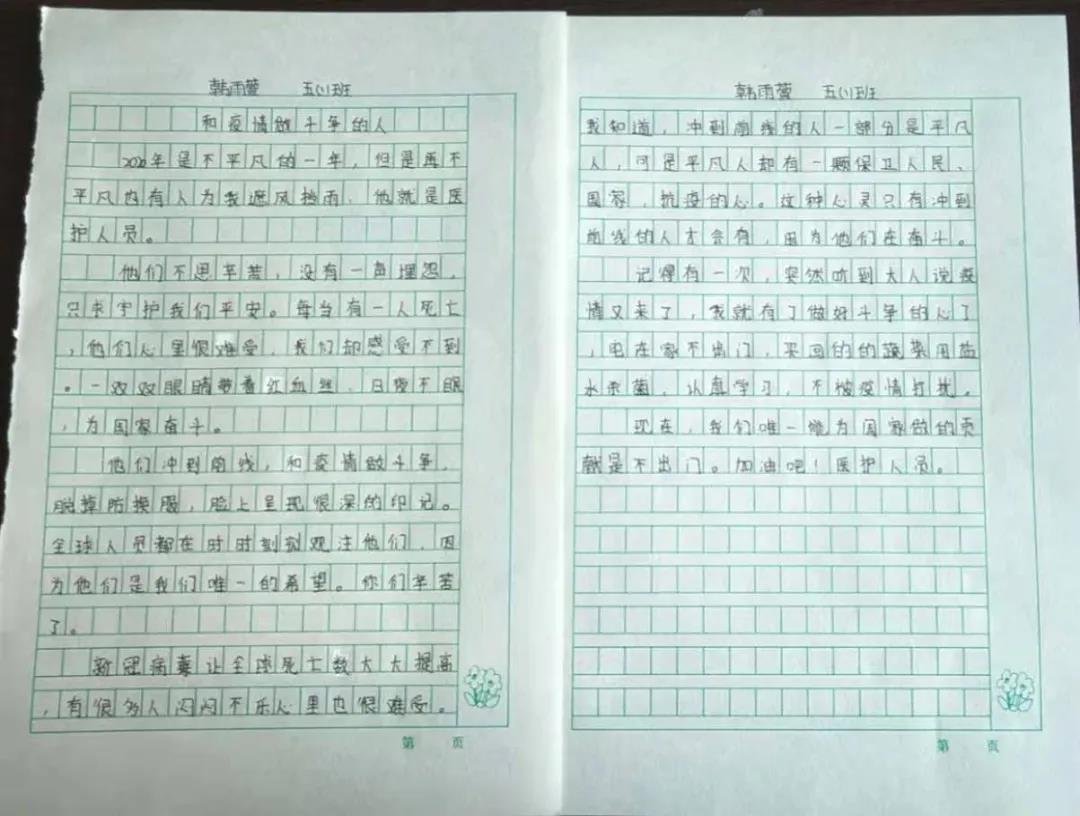 韩雨萱 五(1)班
和疫情做斗争的人
2020年是不平凡的一年，但是再不
平凡也有人为我遮风挡雨，他就是医
护人员。
他们不思辛苦，没有一声埋怨，
只求守护我们平安。每当有一人死亡
，他们心里很难受，我们却感受不到
。一双双眼睛带着红血丝，日夜不眠
，为国家奋斗。
他们冲到前线，和疫情做斗争，
脱掉防换服，脸上呈现很深的印记。
全球人员都在时时刻刻观注他们，因
为他们是我们唯一的希望。你们辛苦
了。
新冠病毒让全球死亡数大大提高
，有很多人闷闷不乐心里也很难受。
韩雨萱 五(1)班
我知道，冲到前线的人一部分是平凡
人，可是平凡人却有一颗保卫人民、
国家，抗疫的心。这种心灵只有冲到
前线的人才会有，因为他们在奋斗。
记得有一次，突然听到大人说疫
情又来了，我就有了做好斗争的心了
，宅在家不出门，买回的的蔬菜用盐
水杀菌，认真学习，不被疫情打扰。
现在，我们唯一能为国家做的贡
就是不出门。加油吧！医护人员。
第 页
第 页